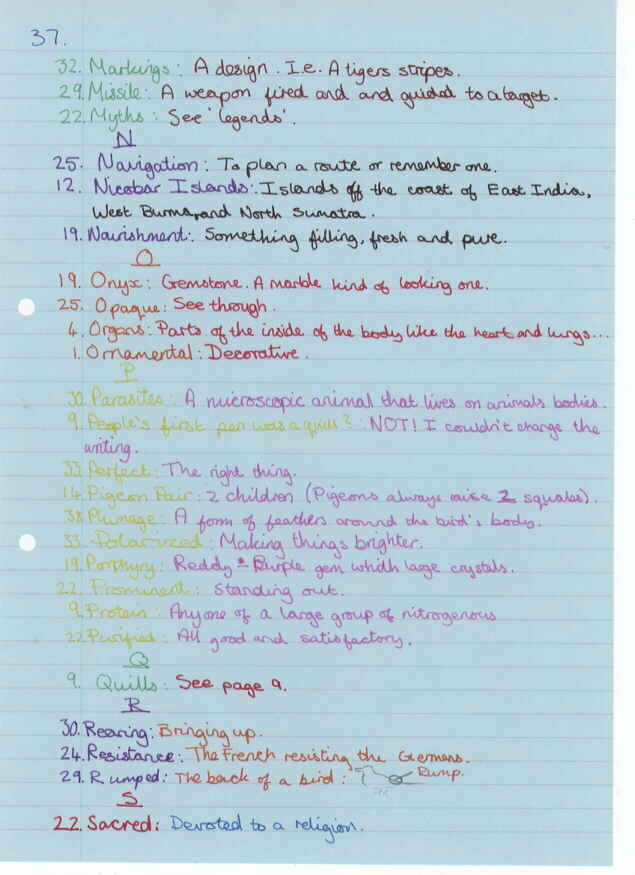 37.
32. Markings: A design. I.e. A tigers stripes.
29. Missile: A weapon fired and and guided to a target.
22. Myths: See 'legends'.
N
25. Navigation: To plan a route or remember one.
12. Nicobar Islands: Islands off the coast of East India,
West Burma, and North Sumatra.
19. Nourishment: Something filling, fresh and pure.
O
19. Onyx: Gemstone. A marble kind of looking one.
25. Opaque: See through.
4. Organs: Parts of the inside of the body like the heart and lungs...
1. Ornamental: Decorative.
P
30. Parasites: A microscopic animal that lives on animals bodies.
9. People's first pen was a quill? NOT! I couldn't change the
writing.
33. Perfect: The right thing.
14. Pigeon Pair: 2 children (Pigeons always raise 2 squabs).
38. Plumage: A form of feathers around the bird's body.
33. Polarized: Making things brighter.
19. Porphyry: Reddy - Purple gem which large crystals.
22. Prominent: Standing out.
9. Protein: Anyone of a large group of nitrogenous
22. Purified: All good and satisfactory.
Q
9. Quills: See page 9.
R
30. Rearing: Bringing up.
24. Resistance: The French resisting the Germans.
29. Rumped: The back of a bird: Rump.
S
22. Sacred: Devoted to a religion.